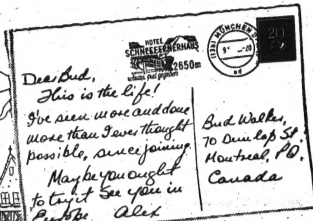 HOTEL
SCHNEEFERNERHAUS
2650m
MÜNCHEN 2
20
Dear Bud,
This is the life!
I've seen more and done
more than I ever thought
possible, since joining.
Maybe you ought
to try it. See you in
Europe. Alex
Bud Walker,
70 Dunlap St.
Montreal, P.Q.
Canada